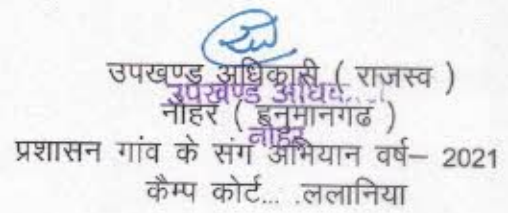 उपखण्ड अधिकारी ( राजस्व )
उपखण्ड
नोहर ( हनुमानगढ )
नोहर
प्रशासन गांव के संग अभियान वर्ष– 2021
कैम्प कोर्ट... .ललानिया